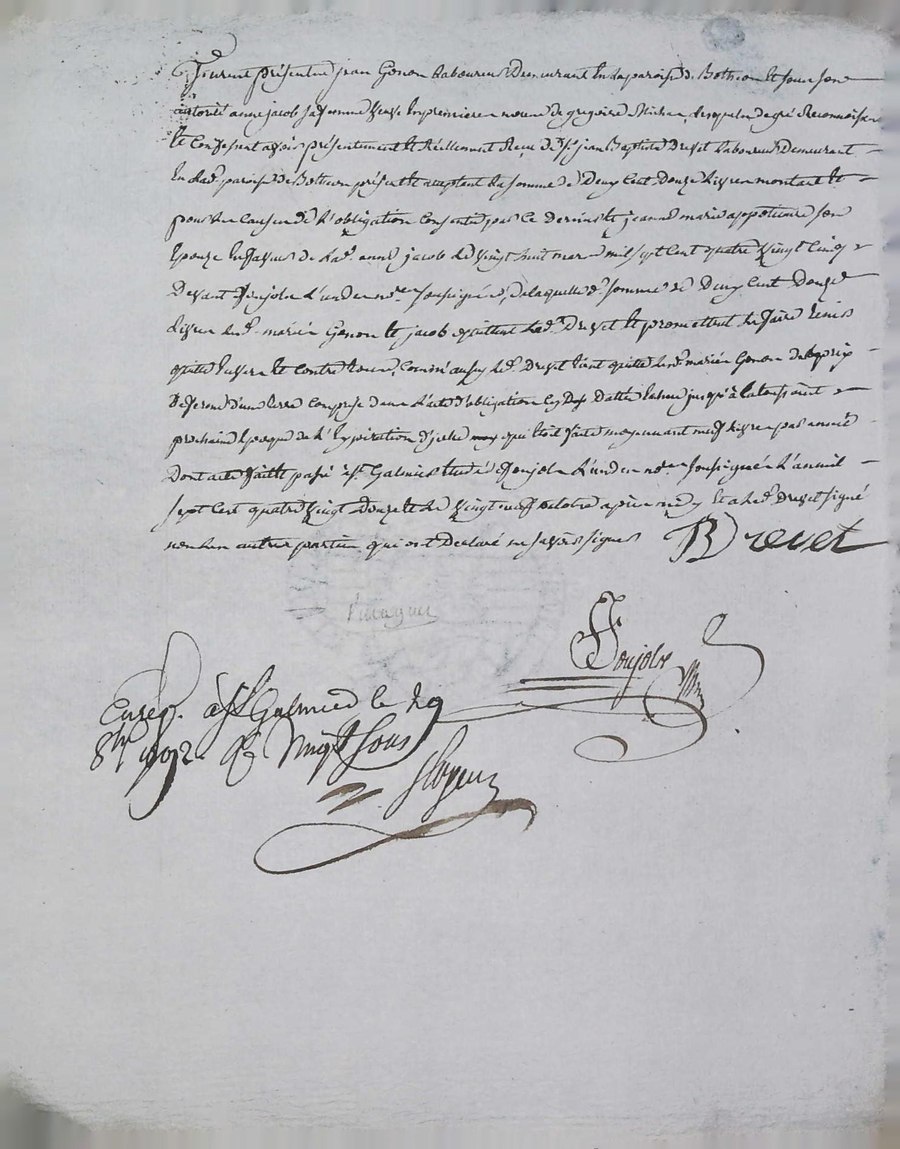 furent présents jean Genon laboureur Demeurant En la paroise de Botheon Et sous son
autorité anne jacob sa femme veuve En premiere noces de gregoire lesquels de gré Reconnoissent
Et Confessent avoir présentement Et Réellement Reçu de Sr jean Baptiste Drevet laboureur Demeurant
En lad. paroise de Botheon présent Et acceptant la somme de Deux Cent Douze livres montant Et
pour les Causes de l'obligation Consentie par Ce Dernier Et jeanne marie son
Epouze En faveur de lad. anne jacob le vingt huit mars mil sept Cent quatre vingt Cinq
Devant l'un des nores soussignés, De laquelle de somme de Deux Cent Douze
livres les d. mariés Genon Et jacob quittent led. Drevet Et promettent le faire tenir
quitte Envers Et Contre tous, Comm'aussy led. Drevet tient quitte lesd. mariés Genon du prix
De ferme d'une terre Comprise dans l'acte d'obligation jusqu'à la toussaint
prochaine Epoque de l'Expiration d'icelle qui Etoit faite moyennant neuf livres par année
Dont acte fait Et passé à St Galmier Etude l'un des nores soussignés l'an mil
sept Cent quatre vingt Douze Et le vingt neuf octobre après midy Et a led. Drevet signé
non les autres parties qui ont Declaré ne savoir signer Drevet
Enreg. à St Galmier le 29
8bre 1792 Rç vingt sous